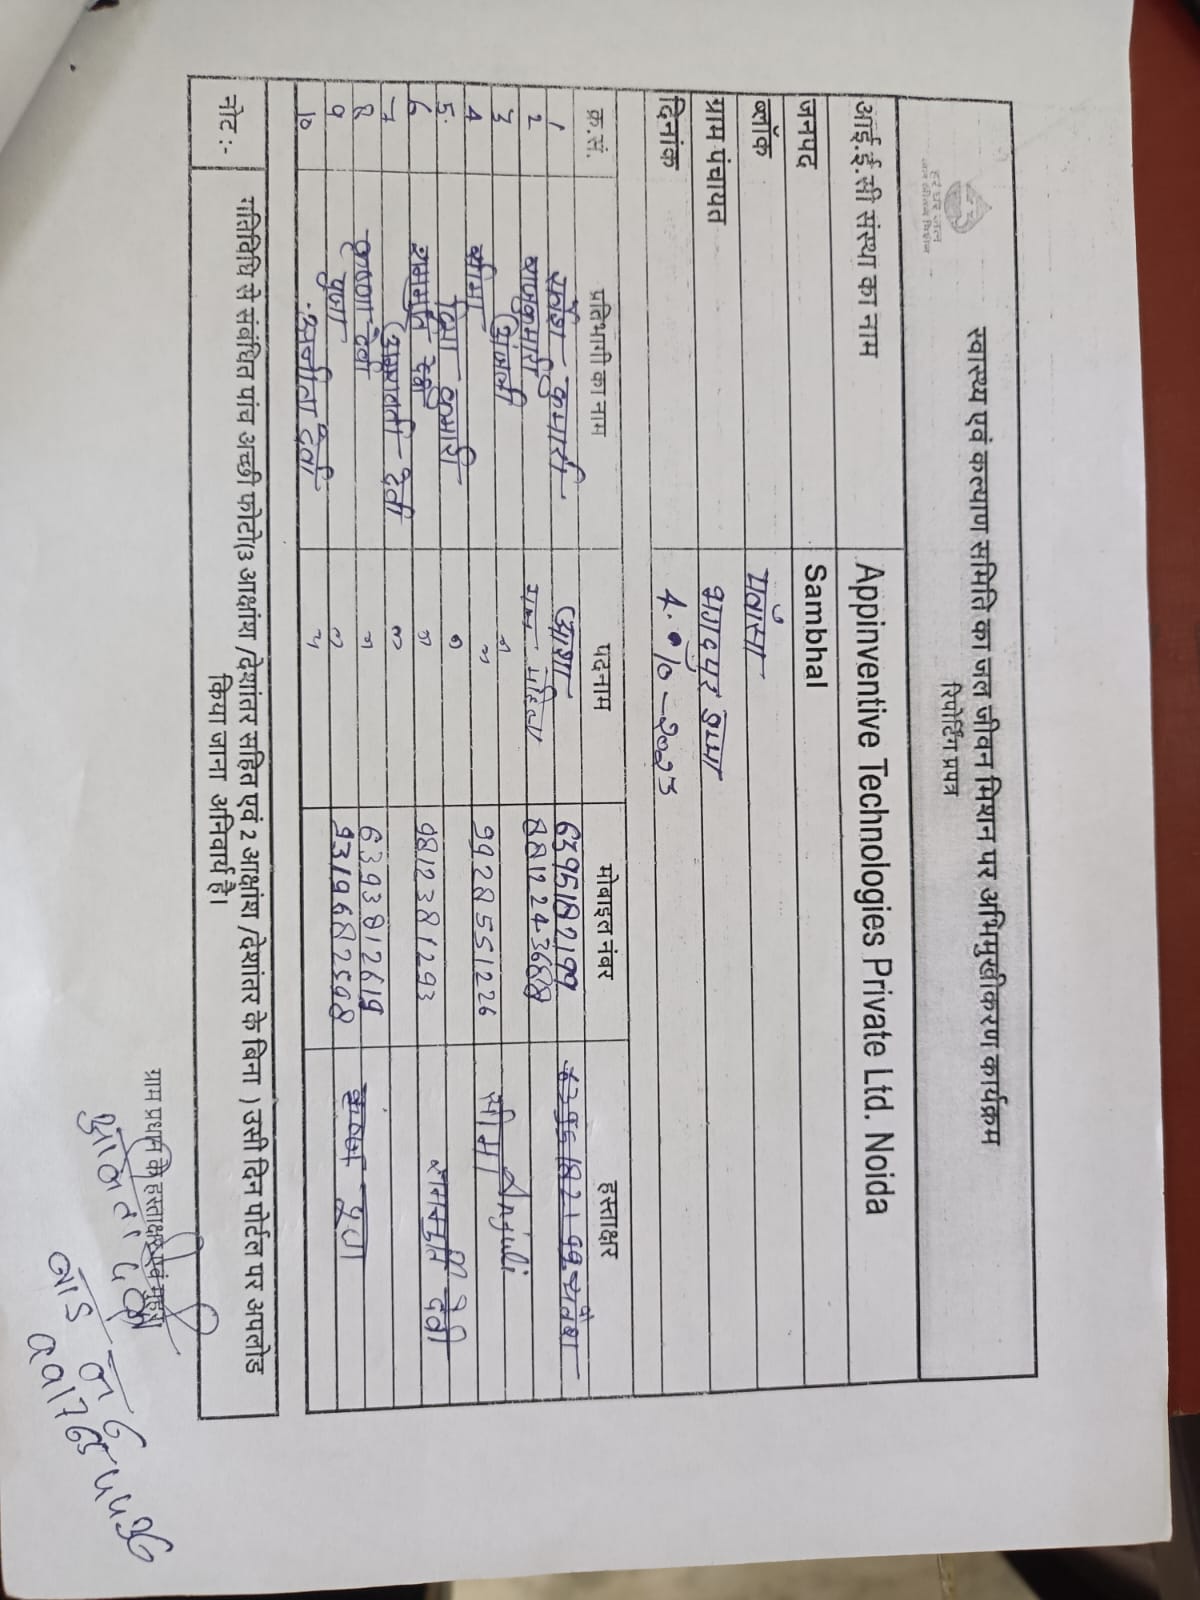 हर घर जल
जल जीवन मिशन
स्वास्थ्य एवं कल्याण समिति का जल जीवन मिशन पर अभिमुखीकरण कार्यक्रम
रिपोर्टिंग प्रपत्र
आई.ई.सी संस्था का नाम Appinventive Technologies Private Ltd. Noida
जनपद Sambhal
ब्लॉक पवांसा
ग्राम पंचायत
दिनांक 4.10-2023
क्र.सं. प्रतिभागी का नाम पदनाम मोबाइल नंबर हस्ताक्षर
1 कुमारी आशा 6395182199
2 राजकुमारी 8812243688
3 अंजली Anjuli
4 सीमा 9928551226 सीमा
5. कुमारी
6 राममुर्ति देवी 9812381293 राममुर्ति देवी
7 देवी
8 कृष्णा देवी 6393812619
9 पूजा 9319682598 पूजा
10 अनीता देवी
नोट:- गतिविधि से संबंधित पांच अच्छी फोटो(3 आक्षांश /देशांतर सहित एवं 2 आक्षांश /देशांतर के बिना ) उसी दिन पोर्टल पर अपलोड
किया जाना अनिवार्य है।
ग्राम प्रधान के हस्ताक्षर एवं मुहर